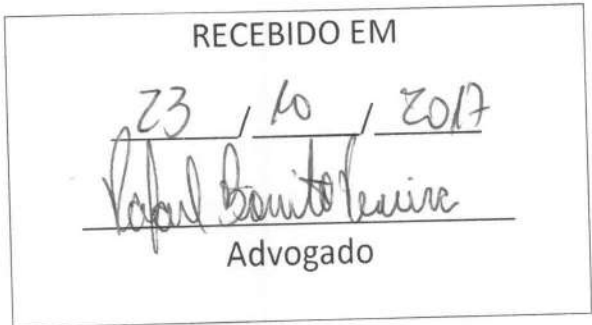 RECEBIDO EM
23 / 10 / 2017
Rafael Bonito
Advogado